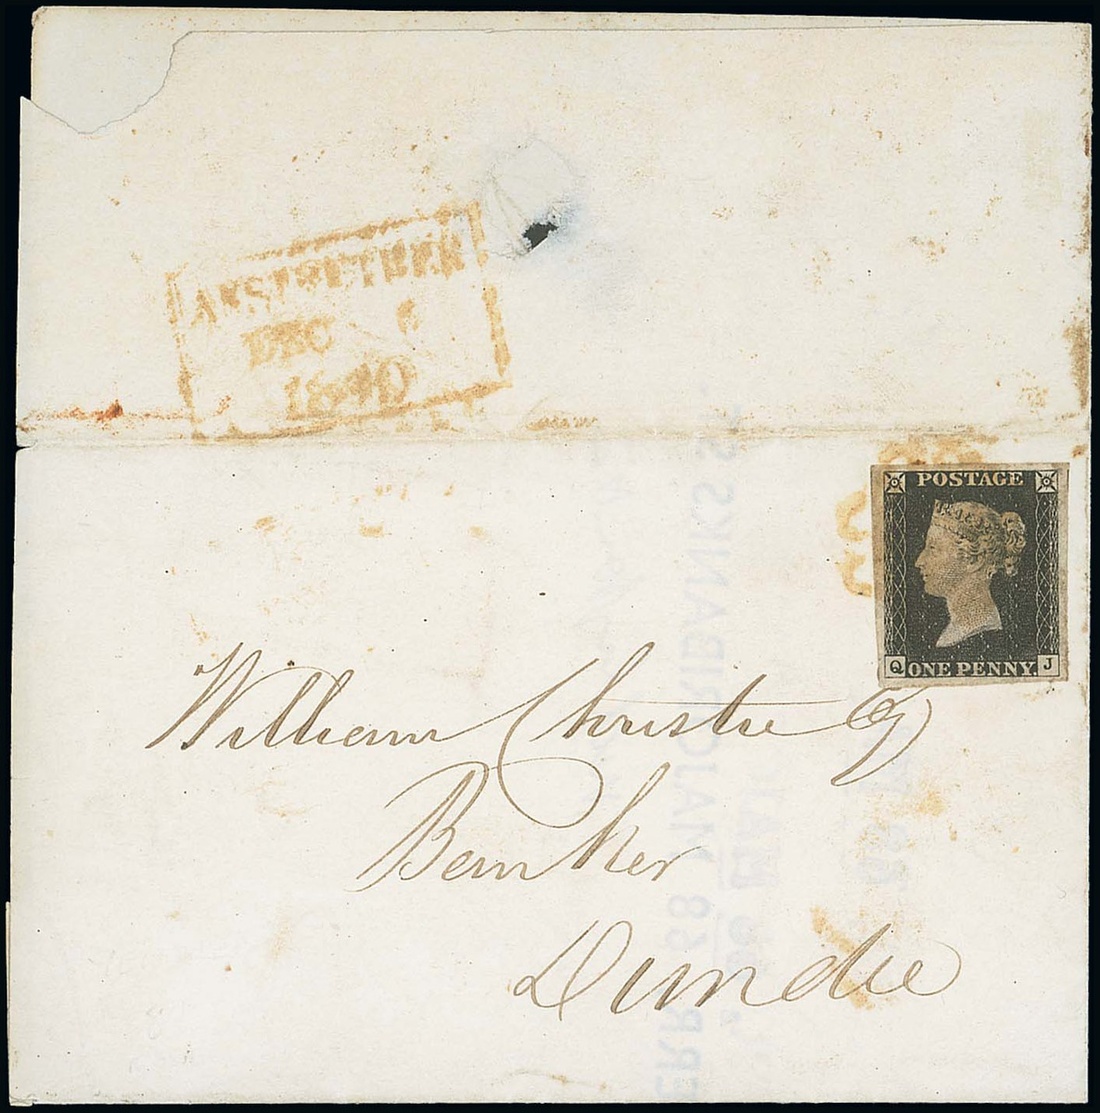 ANSTRUTHER
DEC 6
1840
POSTAGE
Q ONE PENNY. J
William Christie Esq
Banker
Dundee
MAJORIBANKS ST